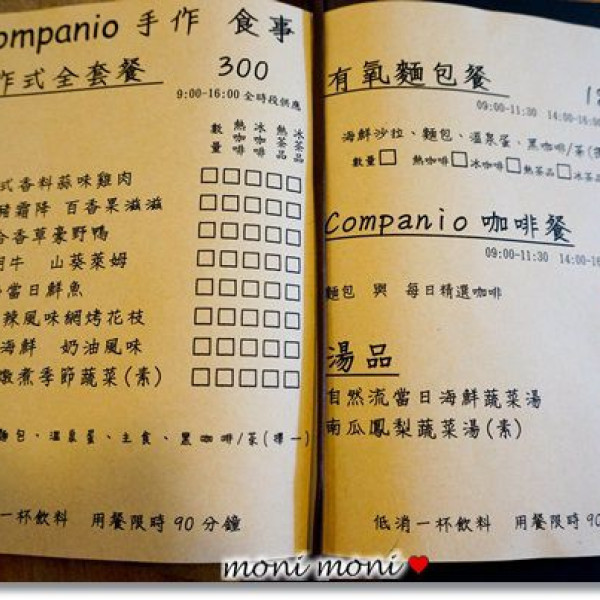 ompanio 手作 食事
作式全套餐 300
9:00-16:00 全時段供應
數量 熱咖啡 冰咖啡 熱茶品 冰茶品
式香料蒜味雞肉 □□□□□
豬霜降 百香果滋滋 □□□□□
合香草豪野鴨 □□□□□
牛 山葵萊姆 □□□□□
當日鮮魚 □□□□□
辣風味網烤花枝 □□□□□
海鮮 奶油風味 □□□□□
燉煮季節蔬菜(素) □□□□□
麵包、溫泉蛋、主食、黑咖啡/茶(擇一)
一杯飲料 用餐限時90分鐘
有氧麵包餐
09:00-11:30 14:00-16:00
海鮮沙拉、麵包、溫泉蛋、黑咖啡/茶(擇
數量□ 熱咖啡□冰咖啡□熱茶品□冰茶品
Companio 咖啡餐
09:00-11:30 14:00-16
麵包 與 每日精選咖啡
湯品
自然流當日海鮮蔬菜湯
南瓜鳳梨蔬菜湯(素)
低消一杯飲料 用餐限時90
moni moni